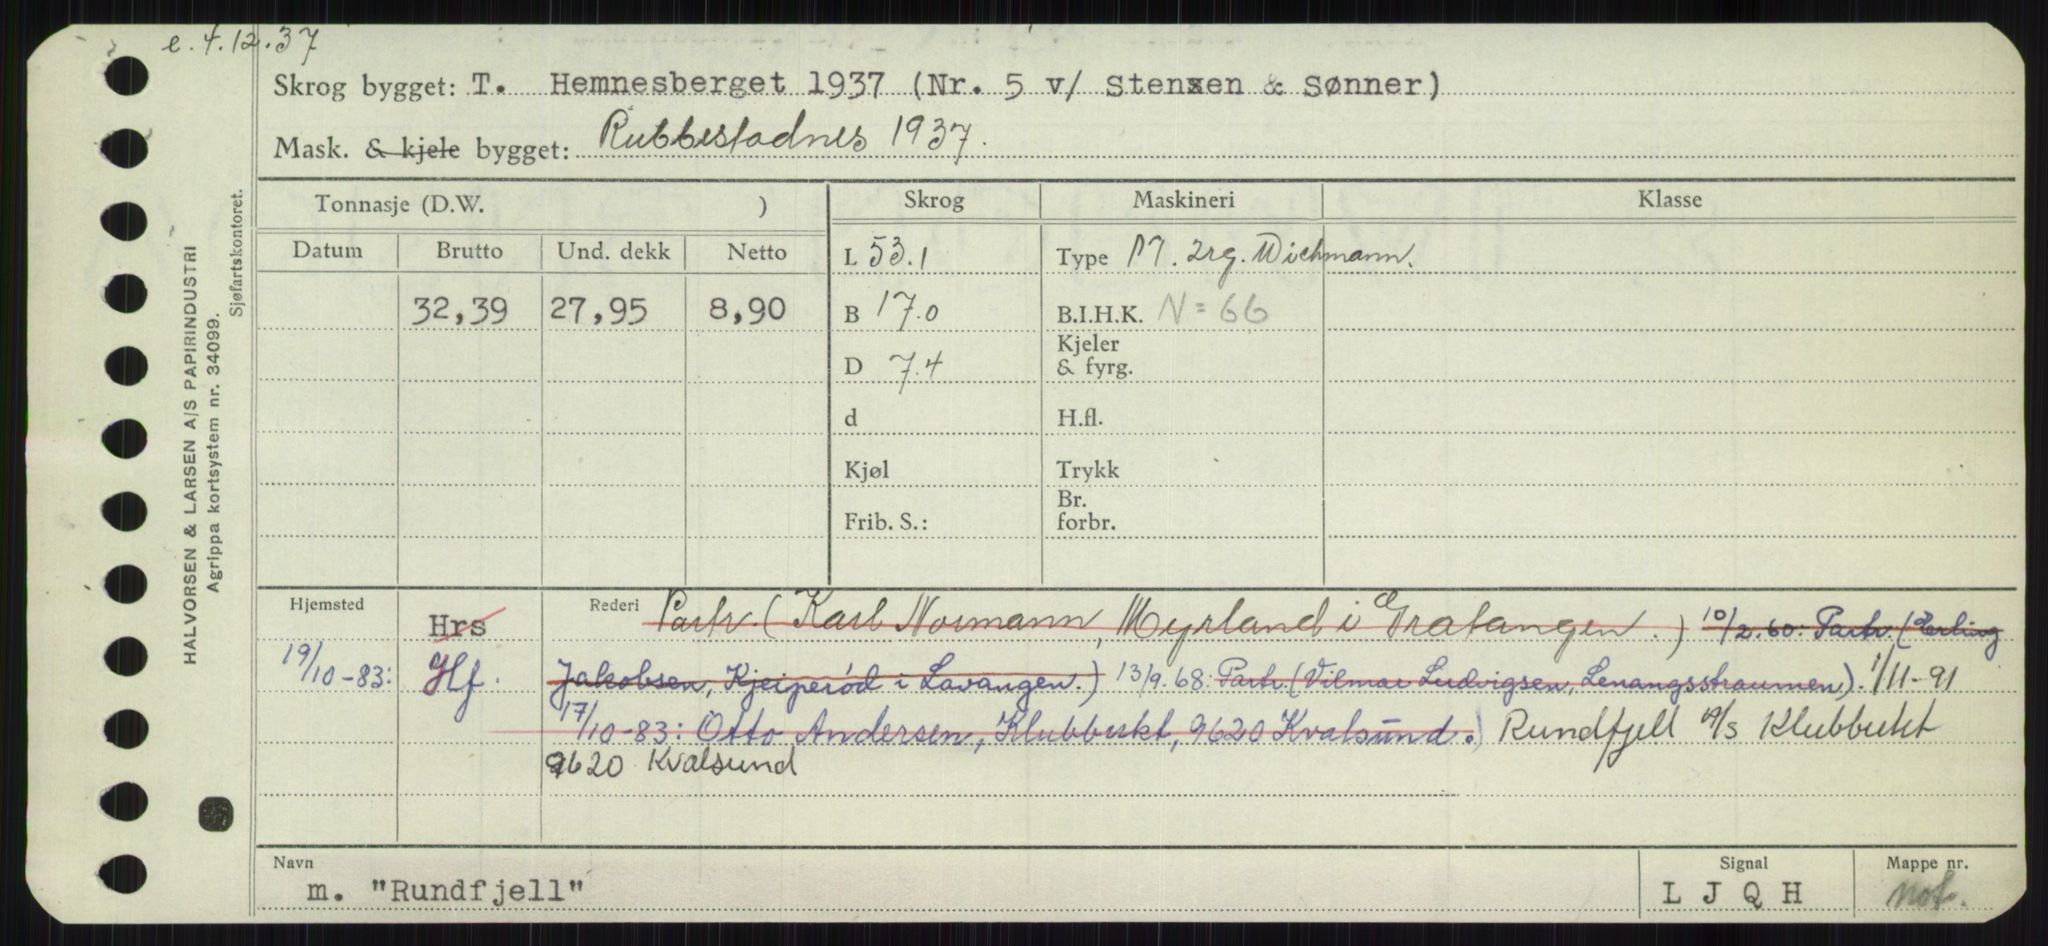 e. 4.12.37
Skrog bygget: T. Hemnesberget 1937 (Nr. 5 v/ Stenxen & Sønner)
Mask. & kjele bygget: Rubbestadnes 1937.
HALVORSEN & LARSEN A/S PAPIRINDUSTRI
Agrippa kortsystem nr. 34099.
Sjøfartskontoret.
Tonnasje (D.W. ) Skrog Maskineri Klasse
Datum Brutto Und. dekk Netto L 53.1 Type M. 2rg. Wichmann.
32,39 27,95 8,90 B 17.0 B.I.H.K. N = 66
D 7.4 Kjeler & fyrg.
d H.fl.
Kjøl Trykk
Frib. S.: Br. forbr.
Hjemsted Hrs Rederi Partr. (Karl Normann, Myrland i Gratangen.) 10/2.60: Partr. (Erling
19/10-83: Hf. Jakobsen, Kjeiperød i Lavangen.) 13/9.68: Partr. (Vilmar Ludvigsen, Lenangsstraumen). 1/11-91
17/10-83: Otto Andersen, Klubbukt, 9620 Kvalsund.) Rundfjell A/S Klubbukt
9620 Kvalsund
Navn Signal Mappe nr.
m. "Rundfjell" L J Q H not.